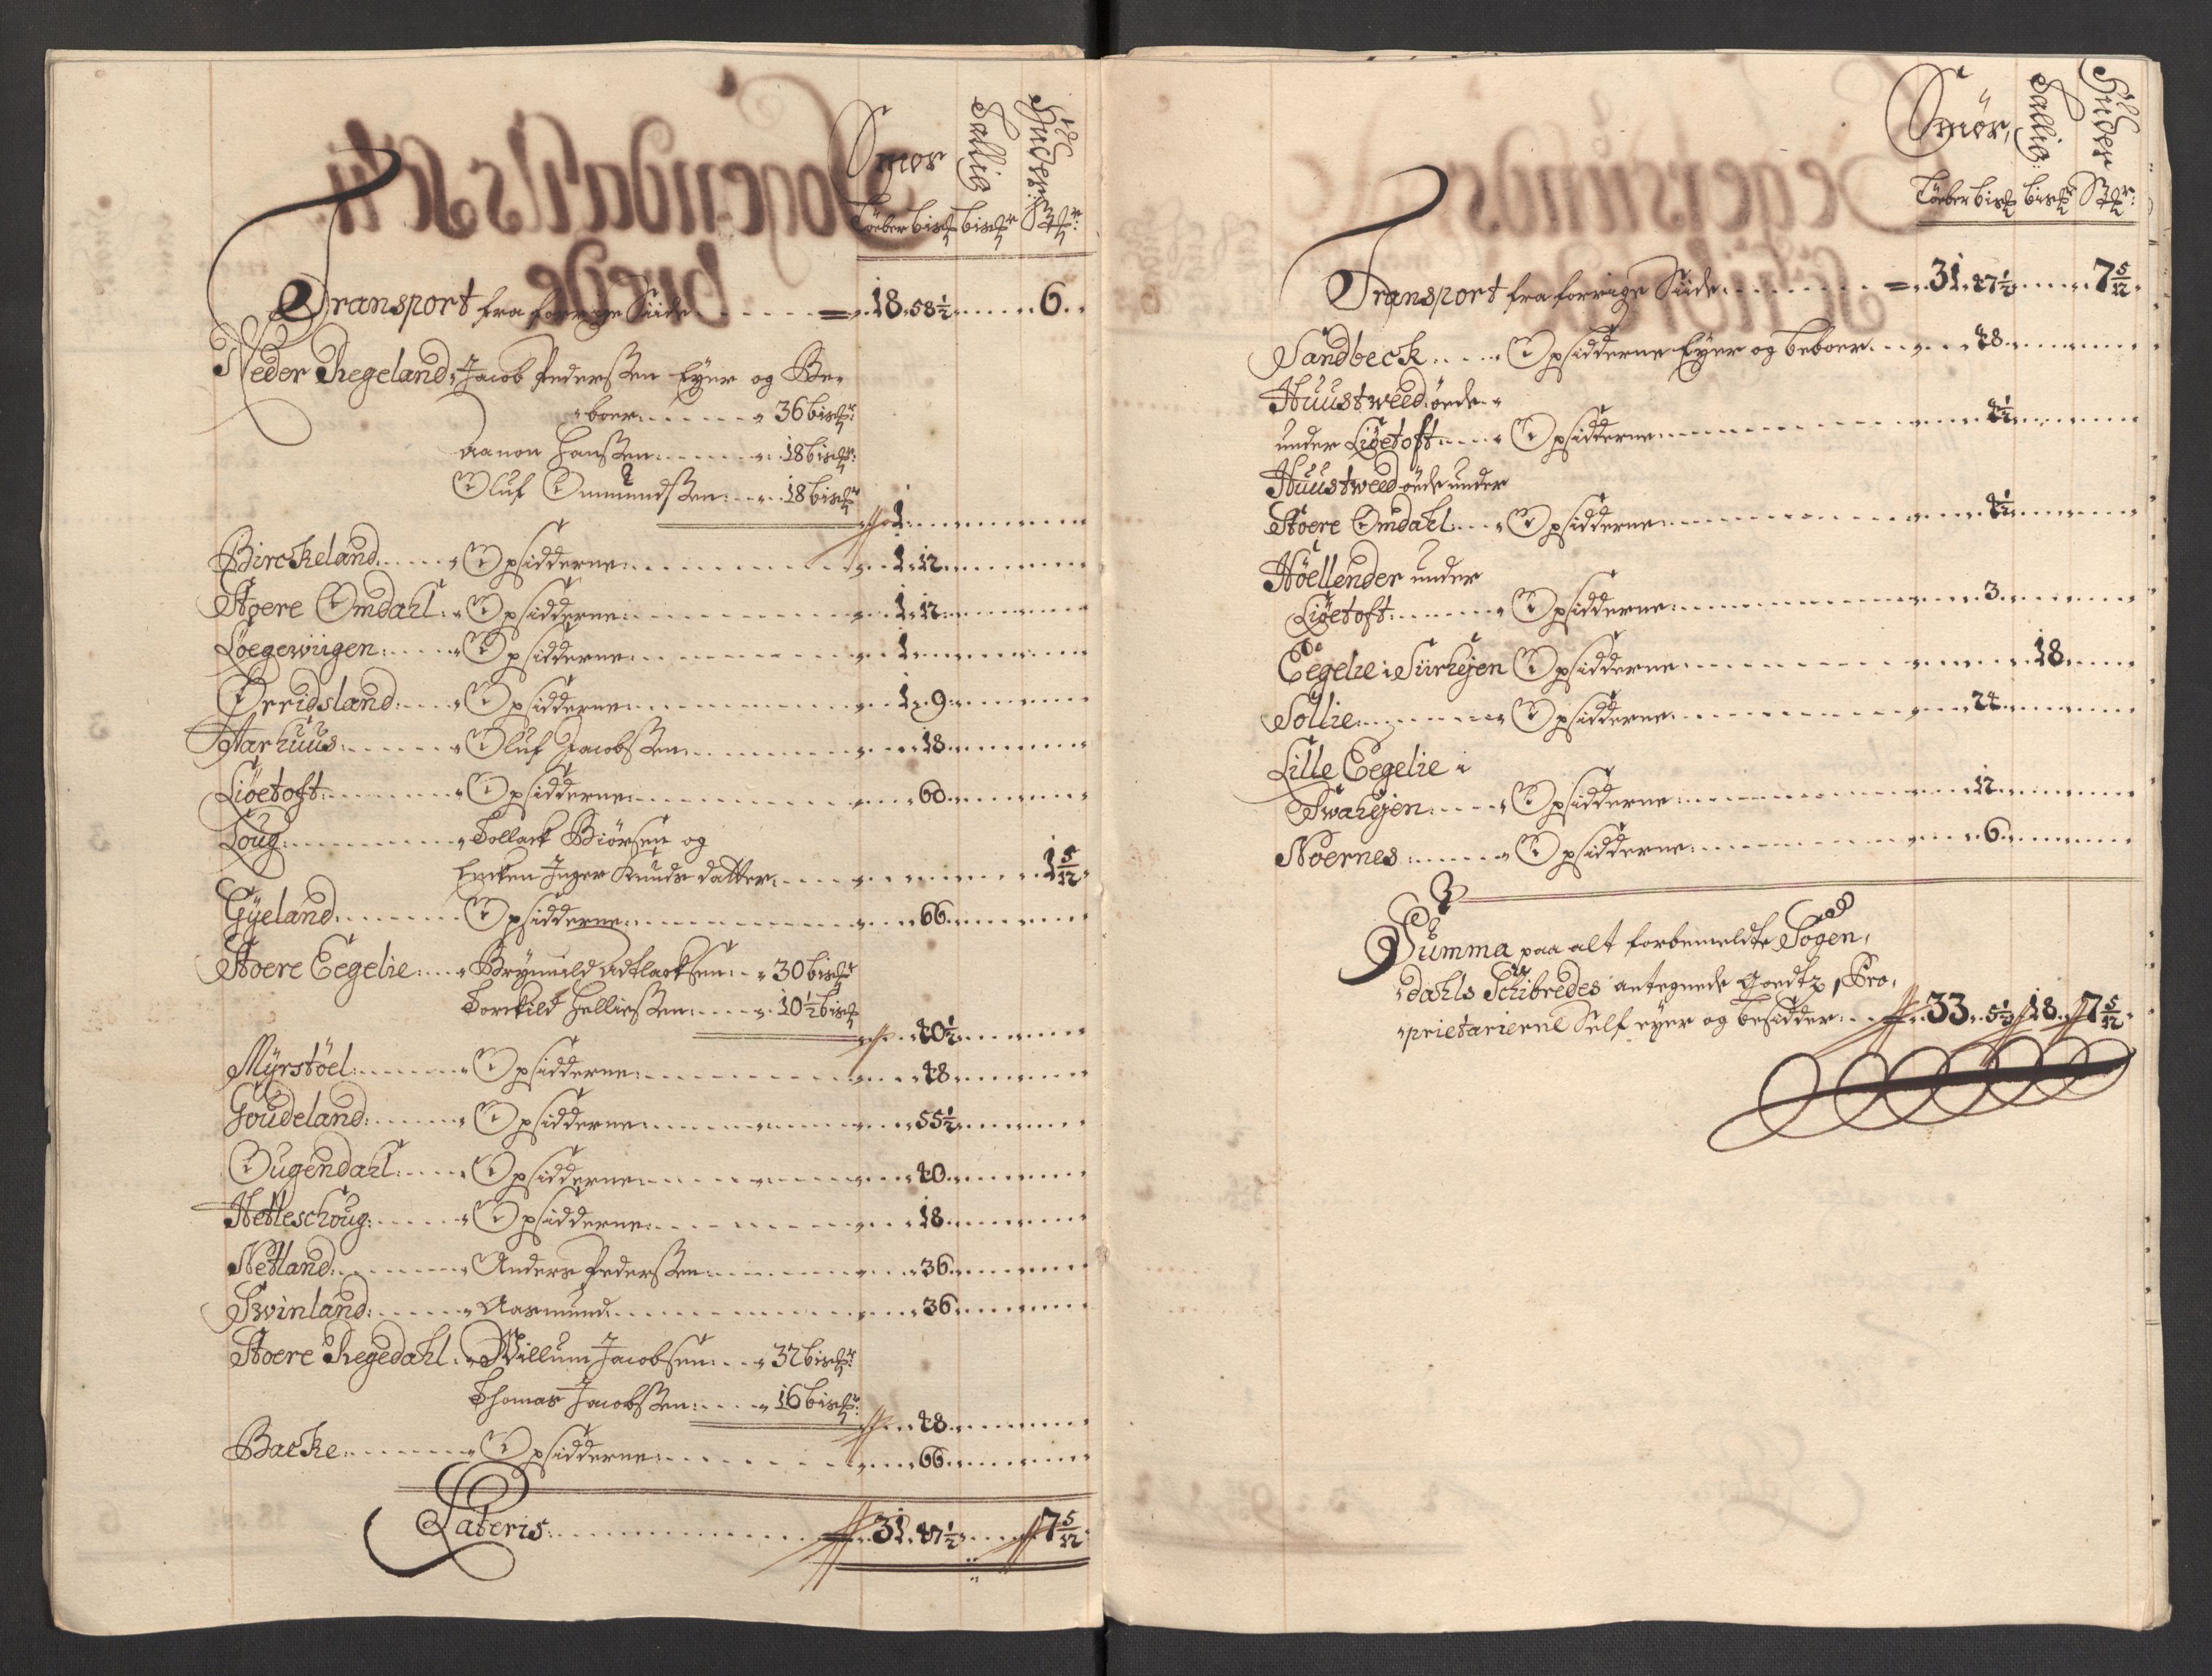 Smør Tallig Huder
Løeber bis℔ bis℔r
Transport fra forrige Siide = 18. 58½ 6.
Neder Regeland. Jacob Pederßen Eyer og Be-
boer. 36 bis℔r
Aanon Hanßen 18 bis℔r
Oluf Ommundßen 18 bis℔r
1.
Birckeland Opsidderne 1. 12.
Stoere Omdahl Opsidderne 1. 12.
Løegewiigen Opsidderne 1.
Orridsland Opsidderne 1. 9.
Aarhuus Oluf Jacobßen 18.
Liøetoft Opsidderne 60.
Loug Tollack Biørsen og
Encken Inger Knuds datter 1 5/12
Gÿeland Opsidderne 66.
Stoere Eegelie Brÿnnild Adtlacksen 30 bis℔r
Torckild Helließen 10½ bis℔
40½
Mÿrstöel Opsidderne 48.
Goudeland Opsidderne 55½
Ougendahl Opsidderne 40.
Hetleschoug Opsidderne 18.
Netland Anders Pederßen 36.
Swinland Aasmund 36.
Stoere Regedahl Willum Jacobsen 32 bis℔r
Thomas Jacobßen 16 bis℔r
48.
Backe Opsidderne 66.
Lateris 31. 47½ 7 5/12
Smør, Tallig Huder
Løeber bis℔ bis℔r
Transport fra forrige Siide = 31. 47½ 7 5/12
Sandbeck Opsidderne Eyer og beboer 48.
Huustweed øede
under Liøetoft Opsidderne 4½
Huustweed øede under
Stoere Omdahl Opsidderne 4½
Höellender under
Liøetoft Opsidderne 3.
Eegelie i Siirhejen Opsidderne 18.
Sollie Opsidderne 24.
Lille Eegelie i
Swahejen Opsidderne 12.
Noernes Opsidderne 6.
Summa paa alt forbemeldte Sogen-
dahls Schibredes antegnede Goedtz, Pro-
prietarierne Self eyer og besidder 33. 5½ 18. 7 5/12